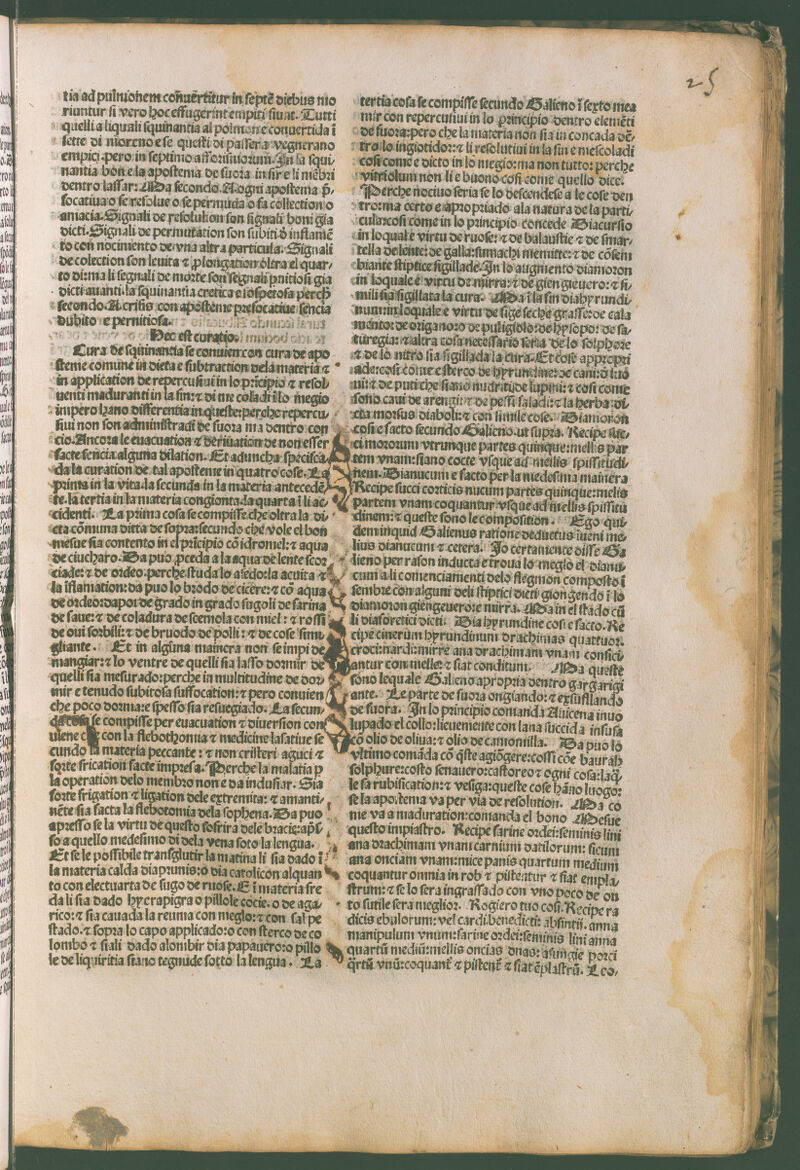 25
tia ad pulmonem conuertitur in septē diebus mo
riuntur si vero hoc effugerint empiti siunt. Tutti
quelli a liquali squinantia al polmone conuertida ī
sette di moreno e se questi di passera vegnerano
empici. pero in septimo afforismorum. In la squi
nantia bon e la apostema de fuora insire li mēbri
dentro lassar: Ma secondo. A ogni apostema p̄
focatiua o se resolue o se permuda o fa collection o
amacia. Signali de resolution son signali boni gia
dicti. Signali de permutation son subiti: ò inflamē
to con nocimento de vna altra particula. Signali
de colection son leuita & plongation oltra el quar
to di: ma li segnali de morte son segnali pnitiosi gia
dicti auanti. la squinantia cretica e sospetosa perch
secondo. A. crisis con aposteme prefocatiue sencia
dubito e pernitiosa.
Hec est curatio.
Cura de squinantia se conuien con cura de apo
steme comune in dieta e subtraction dela materia &
in application de repercusiui in lo pricipio & resol
uenti maduranti in la fin: & di me coladi ī lo megio
impero hano differentia in queste: perche repercu
siui non son administradi de fuora ma dentro con
cio. Ancora le euacuation & deriuation de non esser
facte sencia alguna dilation. Et aduncha specifica
da la curation de tal aposteme in quatro cose. La
prima in la vita. la secunda in la materia antecedē
te. la tertia in la materia congionta. la quarta ī li ac
cidenti. La prima cosa se compisse che oltra la di
eta cōmuna ditta de sopra: secundo che vole el bon
mesue sia contento in el pricipio cō idromel: & aqua
de ciucharo. Da puo pceda a la aqua de lente scor
ciade: & de ordeo. perche studa lo afedo: la acuita &
la īflamation: da puo lo brodo de cicere: & cō aqua
de ordeo: dapoi de grado in grado sugoli de farina
de faue: & de coladura de scemola con miel: & rossi
de oui sorbili: & de bruodo de polli: & de cose simi
gliante. Et in alguna mainera non se impide
mangiar: & lo ventre de quelli sia lasso dormir de
quelli sia mesurado: perche in multitudine de dor
mir e tenudo subitosa suffocation: & pero conuien
che poco dorma: e spesso sia resuegiado. La secun
da cosa se compisse per euacuation & diuersion con
uiene che con la flebothomia & medicine lasatiue se
cundo la materia peccante: & non cristeri aguci &
forte frication facte impresa. Perche la malatia p
la operation delo membro non e da indusiar. Sia
forte frigation & ligation dele extremita: & amanti
nēte sia facta la flebotomia dela sophena. Da puo
apresso se la virtu de questo sofrira dele bracie: aps
so a quello medesimo di dela vena soto la lengua.
Et se le possibile transglutir la matina li sia dado ī
la materia calda diaprunis: o dia catolicon alquan
to con electuarta de sugo de ruose. E ī materia fre
da li sia dado hyerapigra o pillole cocie. o de aga
rico: & sia cauada la reuma con meglo: & con sal pe
stado. & sopra lo capo applicado: o con sterco de co
lombo & siali dado alombir dia papauero: o pillo
le de liquiritia siano tegnude sotto la lengua. La
tertia cosa se compisse secundo Galieno ī sexto mea
mir con repercusiui in lo principio dentro elemēti
de fuora: pero che la materia non sia in concada dē
tro lo ingiotido: & li resolutiui in la fin e mescoladi
cosi come e dicto in lo megio: ma non tutto: perche
vitriolum non li e buono cosi come quello dice.
Perche nociuo seria se lo descendese a le cose den
tro: ma certo e apropriado ala natura de la parti
cula: cosi come in lo principio concede Diacursio
in loqual e virtu de ruose: & de balaustie & de smar
tella de lente: de galla: sumachi memitte: & de cōsem
biante stiptice sigillade. In lo augmento diamoron
in loquale e virtu de mirra: & de gien gieuero: & si
mili sia sigillata la cura. Ma ī la fin diahyrundi
num: in loquale e virtu de fige seche grasse: de cala
mento: de origano: de puligiolo: de hysopo: de sa
turegia: & altra cosa necessario seria de lo solphore
& de lo nitro sia sigillada la cura. Et cose appropri
ade: cosi come e sterco de hyrundine: de cani: ò luo
ui: & de puti che siano nudriti de lupini: & cosi come
sono caui de arengi: & de pessi saladi: & la herba di
cta morsus diaboli: & con simile cose. Diamoron
cosi e facto secundo Galieno. ut supra. Recipe suc
ci mororum vtrunque partes quinque: mellis par
tem vnam: siano cocte vsque ad mellis spissitudi
nem. Dianucum e facto per la medesima mainera
Recipe succi corticis nucum partes quinque: melis
partem vnam coquantur vsque ad mellis spissitu
dinem: & queste sono le composition. Ego qui
dem inquid Galienus ratione deductus iueni me
lius dianucum & cetera. Io certamente disse Ga
lieno per rason inducta e troua lo meglo el dianu
cum a li comenciamenti delo flegmon composto ī
sembre con alguni deli stiptici dicti giongendo ī lo
diamoron giengeuero e mirra. Ma in el stado cū
li diaforetici dicti. Dia hyrundine cosi e facto. Re
cipe cinerum hyrundinum drachimas quattuor.
croci: nardi: mirre ana drachimam vnam confici
antur con melle: & fiat conditum. Ma queste
sono lequale Galieno apropria dentro gargarigi
ante. Le parte de fuora ongiando: & exsufflando
de fuora. In lo principio comanda Auicena inuo
lupado el collo: lieuemente con lana succida infusa
cō olio de oliua: & olio de camomilla. Da puo lo
vltimo comāda cō q̄ste agiōgere: cossi cōe baurah
solphure: costo senauero: castoreo & ogni cosa: laq̄
le fa rubification: & vesiga: queste cose hāno luogo:
se la apostema va per via de resolution. Ma co
me va a maduration: comanda el bono Mesue
questo impiastro. Recipe farine ordei: seminis lini
ana drachimam vnam: carnium datilorum: ficum
ana onciam vnam: mice panis quartum medium
coquantur omnia in rob & pistentur & fiat empla
strum: & se lo sera ingrassado con vno poco de on
to sutile sera meglior. Rogiero tuo cosi. Recipe ra
dicis ebulorum: vel cardi benedicti: absintii. anna
manipulum vnum: farine ordei: seminis lini anna
quartū mediū: mellis oncias duas: asungie porci
q̄rtū vnū: coquant̄ & pistent̄ & fiat ēplastrū. Leo/